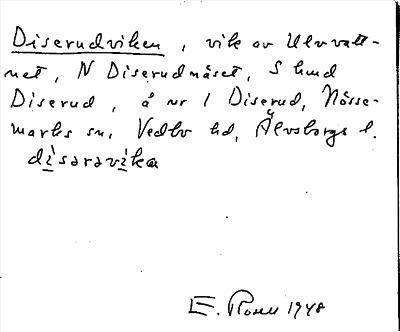 Diserudviken, vik av Ulvvatt-
net, N Diserudnäset, S lund
Diserud, å nr 1 Diserud, Nösse-
marks sn, Vedbo hd, Älvsborgs l.
dìsəravìka
E. Rosell 1948